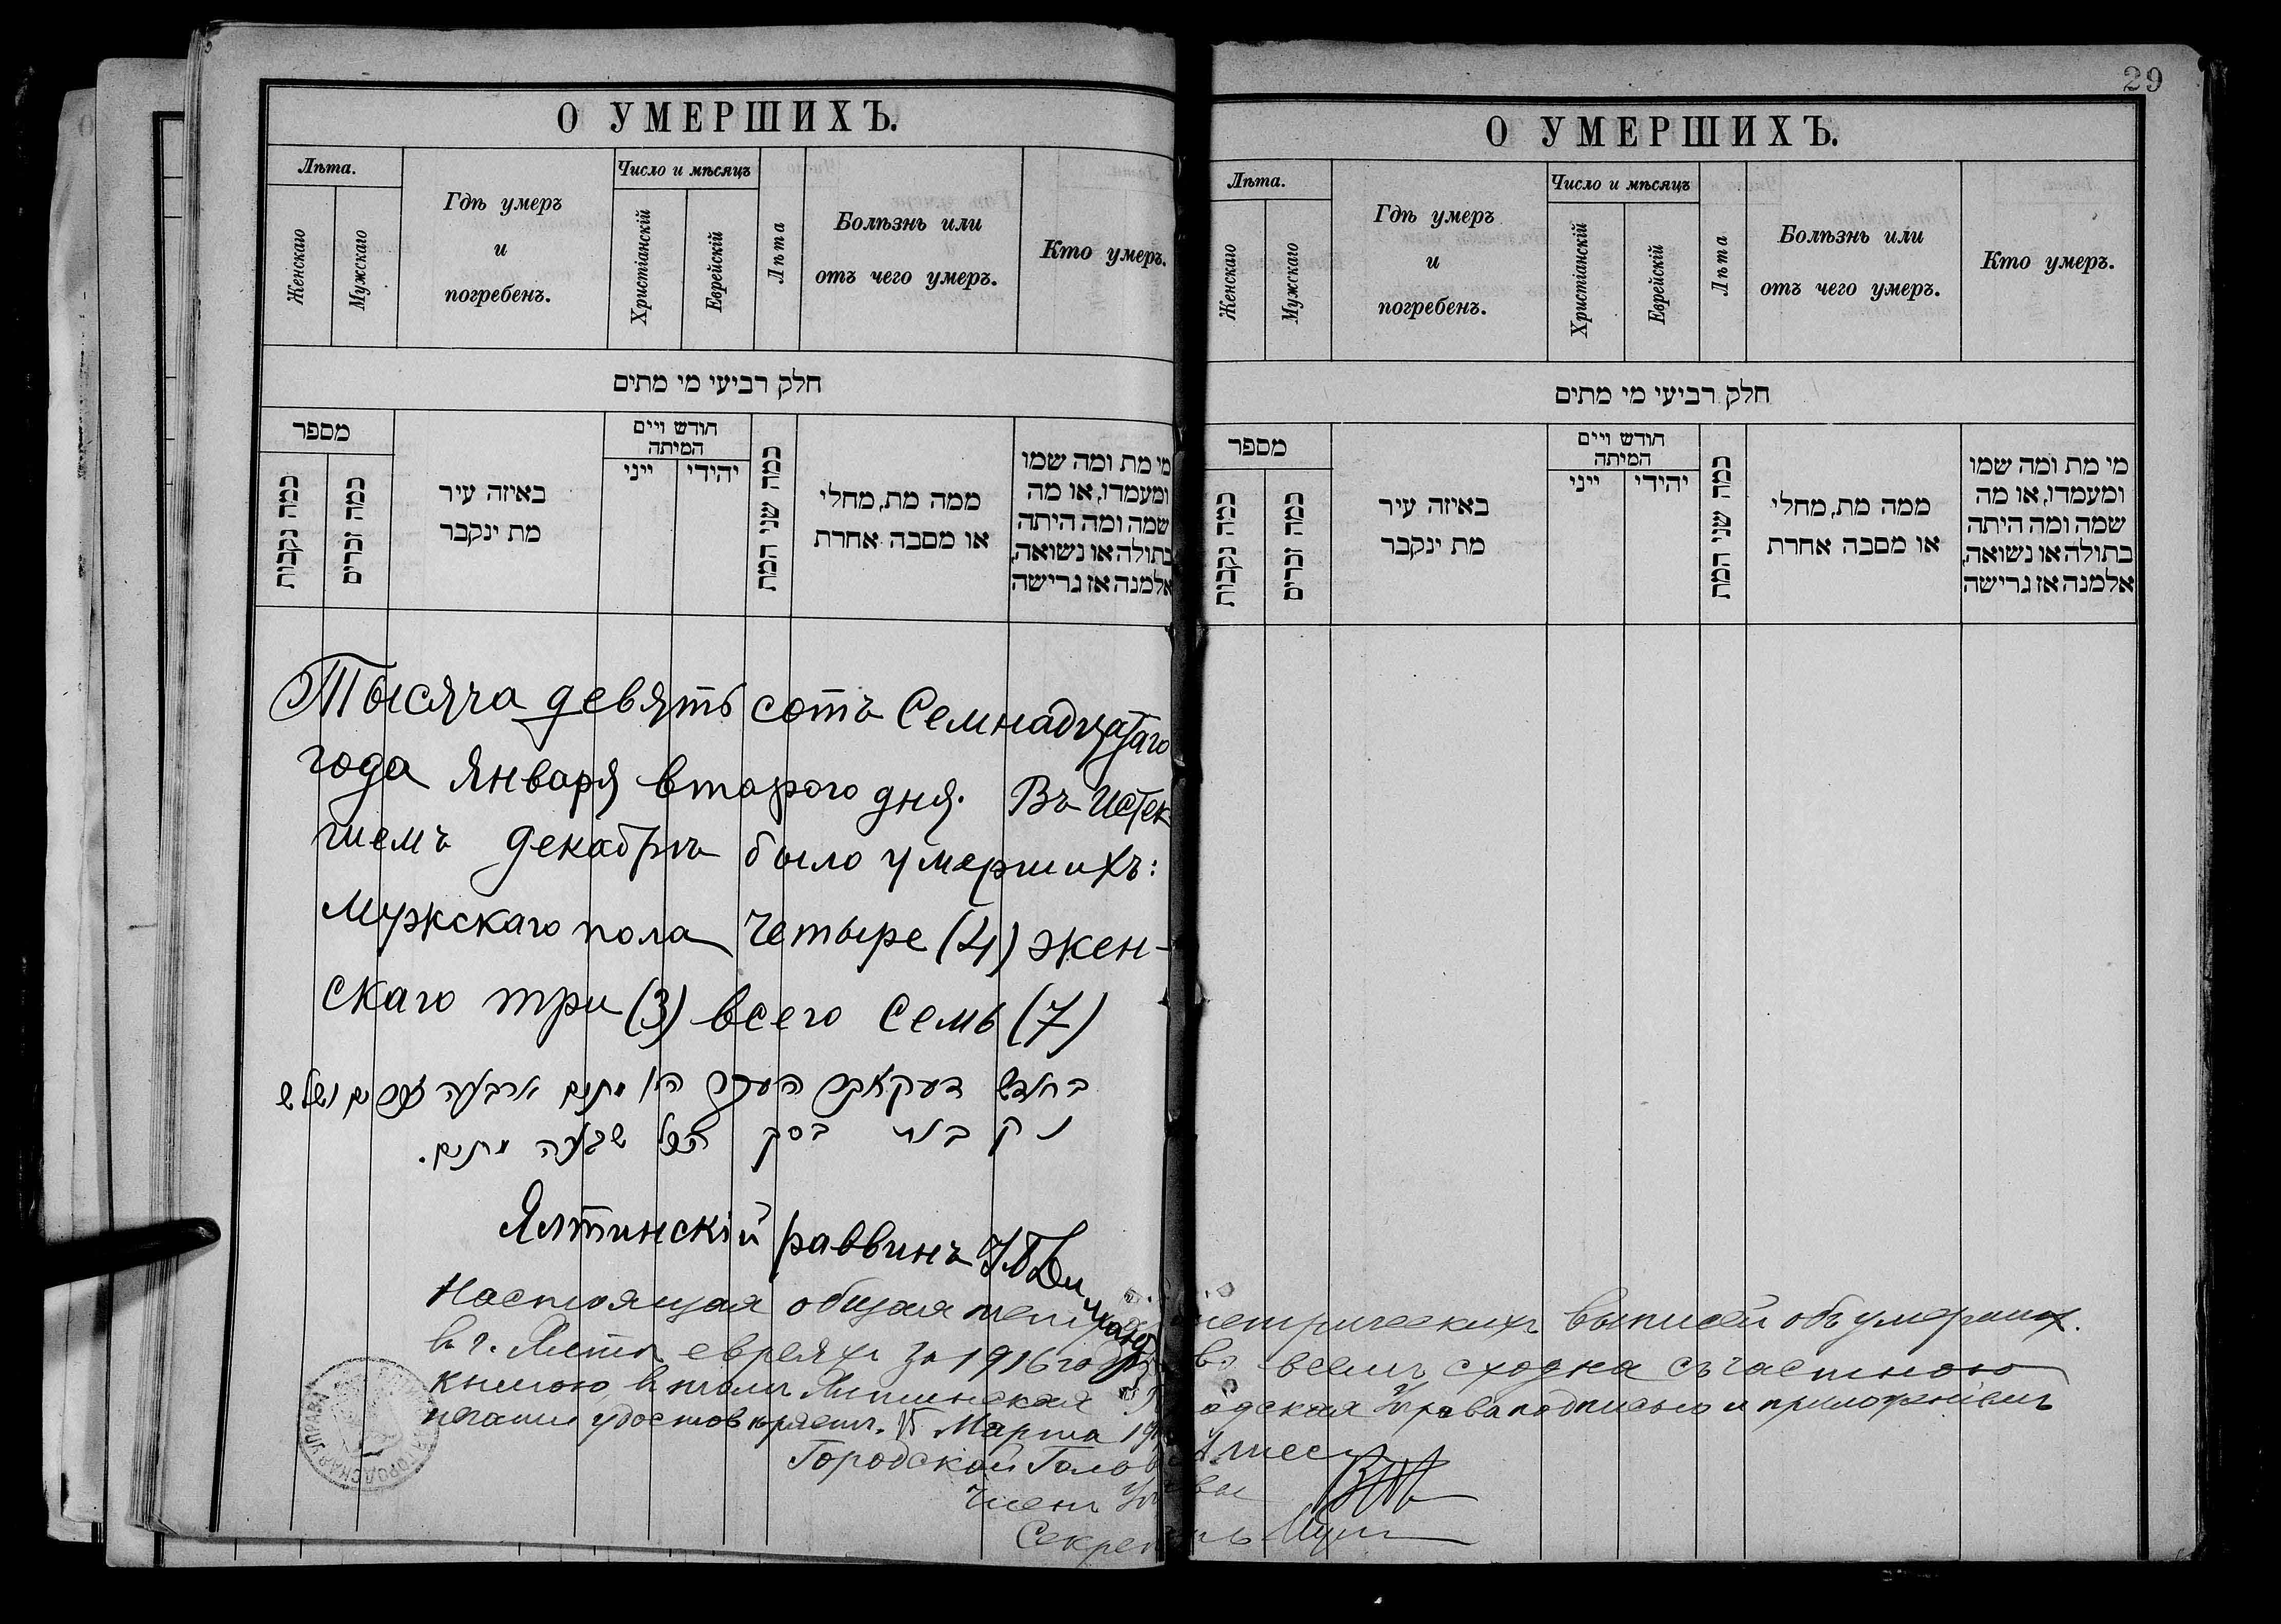 О УМЕРШИХЪ.
Лѣта.
Женскаго
Мужскаго
Гдѣ умеръ
и
погребенъ.
Число и мѣсяцъ
Христіанскій
Еврейскій
Лѣта
Болѣзнь или
отъ чего умеръ.
Кто умеръ.
חלק רביעי מי מתים
מספר
כמה נקבות
כמה זכרים
באיזה עיר
מת ינקבר
חודש ויים
המיתה
ייני
יהודי
כמה שני המת
ממה מת, מחלי
או מסבה אחרת
מי מת ומה שמו
ומעמדו, או מה
שמה ומה היתה
בתולה או נשואה,
אלמנה אז גרישה
Тысяча девять сотъ Семнадцатаго
года Января второго дня. Въ Истек
шемъ декабрѣ было умершихъ:
Мужскаго пола Четыре (4) жен-
скаго три (3) всего Семь (7)
בחודש דעקאבר העבר היו מתים ארבעה זכרים ושלש
נקבות בסך הכל שבעה מתים.
Ялтинскій раввинъ
29
О УМЕРШИХЪ.
Лѣта.
Женскаго
Мужскаго
Гдѣ умеръ
и
погребенъ.
Число и мѣсяцъ
Христіанскій
Еврейскій
Лѣта
Болѣзнь или
отъ чего умеръ.
Кто умеръ.
חלק רביעי מי מתים
מספר
כמה נקבות
כמה זכרים
באיזה עיר
מת ינקבר
חודש ויים
המיתה
ייני
יהודי
כמה שני המת
ממה מת, מחלי
או מסבה אחרת
מי מת ומה שמו
ומעמדו, או מה
שמה ומה היתה
בתולה או נשואה,
אלמנה אז גרישה
Настоящая общая метрическихъ выписей объ умерших.
в г. Ялтѣ евреяхъ за 1916 годъ во всемъ сходна съ частною
книгою, в томъ Ялтинская Городская Управа подписью и приложеніемъ
печати удостовѣряетъ. 15 Марта
Городской Голова
Членъ Управы
Секретарь
УПРАВА ГОРОДСКАЯ